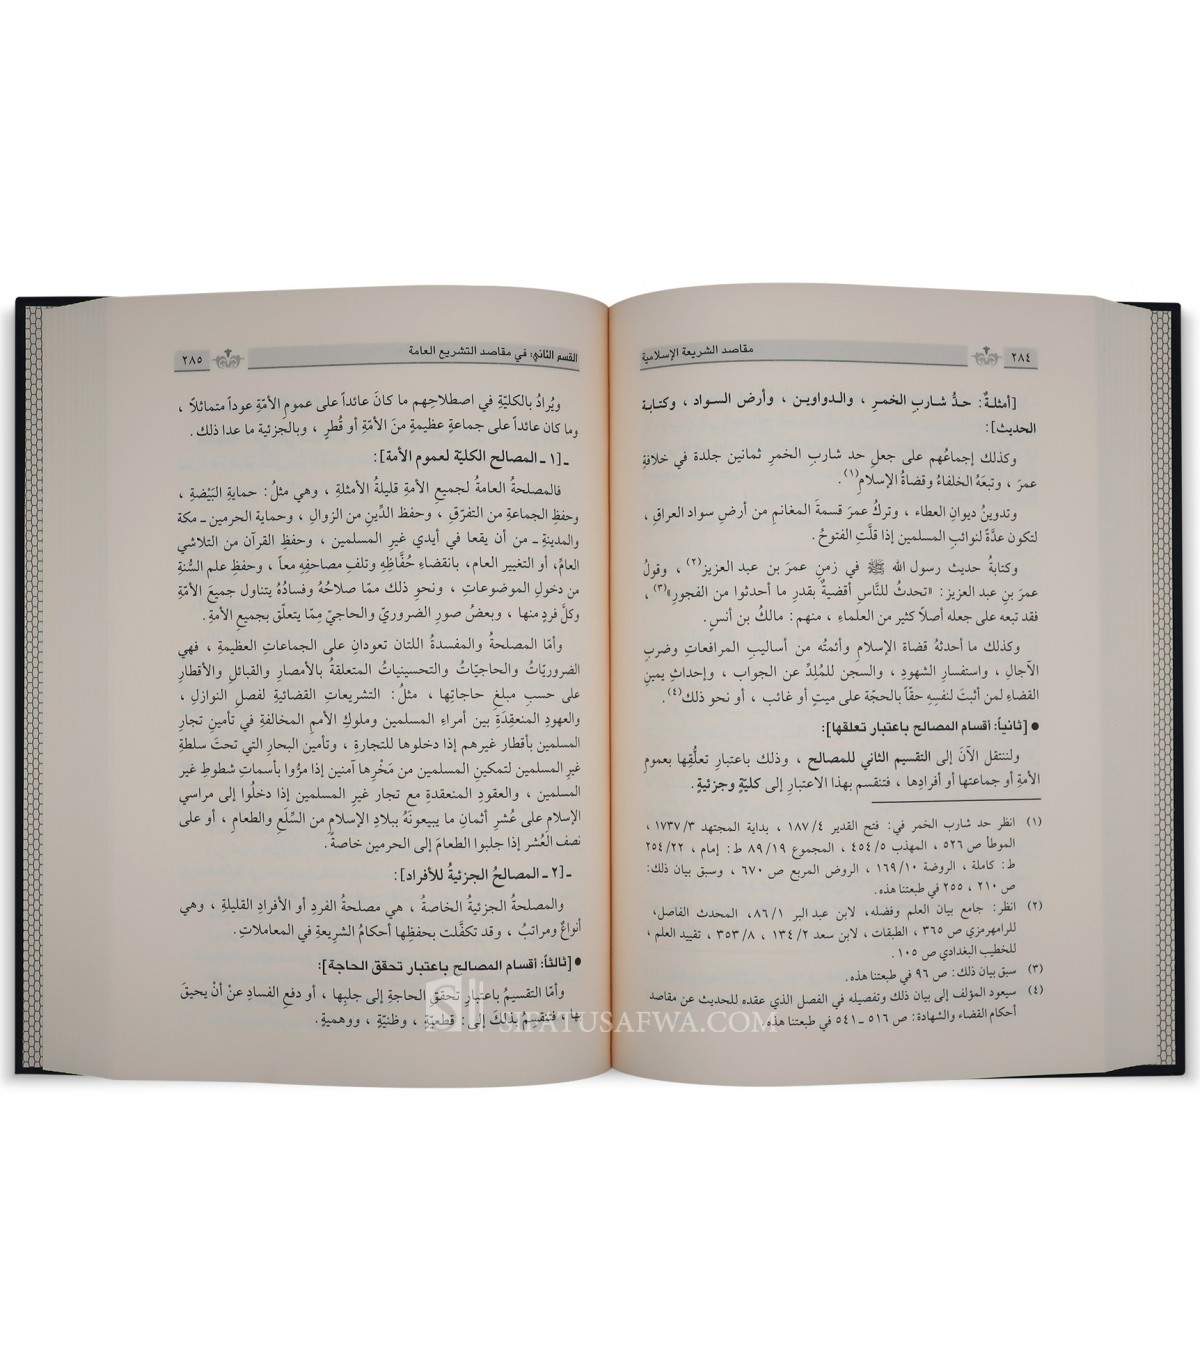 ٢٨٤ مقاصد الشريعة الإسلامية
[أمثلةٌ: حدُّ شاربِ الخمرِ ، والدواوين ، وأرض السواد ، وكتابة
الحديث]:
وكذلك إجماعُهم على جعلِ حد شاربِ الخمرِ ثمانين جلدة في خلافةِ
عمرَ ، وتبعَهُ الخلفاءُ وقضاةُ الإسلامِ(١) .
وتدوينُ ديوانِ العطاء ، وتركُ عمرَ قسمةَ المغانمِ من أرضِ سواد العراقِ ،
لتكون عدَّةً لنوائبِ المسلمين إذا قلَّتِ الفتوحُ .
وكتابةُ حديث رسول الله ﷺ في زمنِ عمرَ بن عبد العزيز(٢) ، وقولُ
عمرَ بنِ عبد العزيز : «تحدثُ للنَّاسِ أقضيةٌ بقدرِ ما أحدثوا من الفجورِ»(٣) ،
فقد تبعه على جعله أصلًا كثير من العلماءِ ، منهم : مالكُ بن أنسٍ .
وكذلك ما أحدثهُ قضاة الإسلامِ وأئمتُه من أساليبِ المرافعاتِ وضربِ
الآجالِ ، واستفسارِ الشهودِ ، والسجن للمُلِدِّ عن الجواب ، وإحداثِ يمينِ
القضاءِ لمن أثبتَ لنفسِهِ حقّاً بالحجّة على ميتٍ أو غائب ، أو نحو ذلك(٤) .
● [ثانياً: أقسام المصالح باعتبار تعلقها]:
ولننتقل الآنَ إلى التقسيم الثاني للمصالح ، وذلك باعتبارِ تعلُّقِها بعمومِ
الأمةِ أو جماعتها أو أفرادِها ، فتنقسم بهذا الاعتبارِ إلى كليّةٍ وجزئيةٍ .
(١) انظر حد شارب الخمر في: فتح القدير ١٨٧/٤ ، بداية المجتهد ١٧٣٧/٣ ،
الموطأ ص ٥٢٦ ، المهذب ٤٥٤/٥ ، المجموع ٨٩/١٩ ط: إمام ، ٢٥٤/٢٢
ط: كاملة ، الروضة ١٦٩/١٠ ، الروض المربع ص ٦٧٠ ، وسبق بيان ذلك:
ص ٢١٠ ، ٢٥٥ في طبعتنا هذه.
(٢) انظر: جامع بيان العلم وفضله، لابن عبد البر ٨٦/١، المحدث الفاصل،
للرامهرمزي ص ٣٦٥ ، الطبقات ، لابن سعد ١٣٤/٢ ، ٣٥٣/٨ ، تقييد العلم ،
للخطيب البغدادي ص ١٠٥.
(٣) سبق بيان ذلك: ص ٩٦ في طبعتنا هذه.
(٤) سيعود المؤلف إلى بيان ذلك وتفصيله في الفصل الذي عقده للحديث عن مقاصد
أحكام القضاء والشهادة: ص ٥١٦ ـ ٥٤١ في طبعتنا هذه.
القسم الثاني: في مقاصد التشريع العامة ٢٨٥
ويُرادُ بالكليّةِ في اصطلاحِهم ما كانَ عائداً على عمومِ الأمّةِ عوداً متماثلًا ،
وما كان عائداً على جماعةٍ عظيمةٍ منَ الأمّةِ أو قُطرٍ ، وبالجزئية ما عدا ذلك .
ـ [١ ـ المصالح الكلية لعموم الأمة]:
فالمصلحةُ العامةُ لجميعِ الأمةِ قليلةُ الأمثلةِ ، وهي مثلُ: حمايةِ البَيْضةِ ،
وحفظِ الجماعةِ من التفرّقِ ، وحفظ الدِّينِ من الزوالِ ، وحماية الحرمين ـ مكة
والمدينةِ ـ من أن يقعا في أيدي غيرِ المسلمين ، وحفظِ القرآن من التلاشي
العامِّ، أو التغيير العام، بانقضاءِ حُفَّاظِهِ وتلفِ مصاحفِه معاً ، وحفظِ علم السُّنةِ
من دخولِ الموضوعاتِ ، ونحوِ ذلك ممّا صلاحُهُ وفسادُهُ يتناول جميعَ الأمّةِ
وكلَّ فردٍ منها ، وبعضُ صورِ الضروريّ والحاجيّ مِمّا يتعلّق بجميعِ الأمةِ .
وأمّا المصلحةُ والمفسدةُ اللتان تعودانِ على الجماعاتِ العظيمةِ ، فهي
الضروريّاتُ والحاجيّاتُ والتحسينياتُ المتعلقةُ بالأمصارِ والقبائلِ والأقطارِ
على حسبِ مبلغِ حاجاتِها ، مثلُ: التشريعاتِ القضائيةِ لفصل النوازلِ ،
والعهودِ المنعقِدَةِ بين أمراءِ المسلمين وملوكِ الأممِ المخالفةِ في تأمين تجارِ
المسلمين بأقطار غيرهم إذا دخلوها للتجارةِ ، وتأمين البحارِ التي تحتَ سلطةِ
غيرِ المسلمين لتمكينِ المسلمين من مَخْرِها آمنين إذا مرُّوا بأسماتِ شطوطِ غير
المسلمين ، والعقودِ المنعقدةِ مع تجار غيرِ المسلمين إذا دخلُوا إلى مراسي
الإسلامِ على عُشرِ أثمانِ ما يبيعونَهُ ببلادِ الإسلامِ من السِّلَعِ والطعامِ ، أو على
نصف العُشر إذا جلبوا الطعامَ إلى الحرمين خاصةً .
ـ [٢ ـ المصالحُ الجزئيةُ للأفراد]:
والمصلحةُ الجزئيةُ الخاصةُ ، هي مصلحةُ الفردِ أو الأفرادِ القليلةِ ، وهي
أنواعٌ ومراتبُ ، وقد تكفَّلت بحفظِها أحكامُ الشرِيعةِ في المعاملاتِ .
● [ثالثاً: أقسام المصالح باعتبار تحقق الحاجة]:
وأمّا التقسيمُ باعتبارِ تحققِ الحاجة إلى جلبِها ، أو دفع الفسادِ عنْ أنْ يحيقَ
بها ، فتنقسم بذلك إلى: قطعيّةٍ ، وظنيّةٍ ، ووهميةٍ .
SIFATUSAFWA.COM